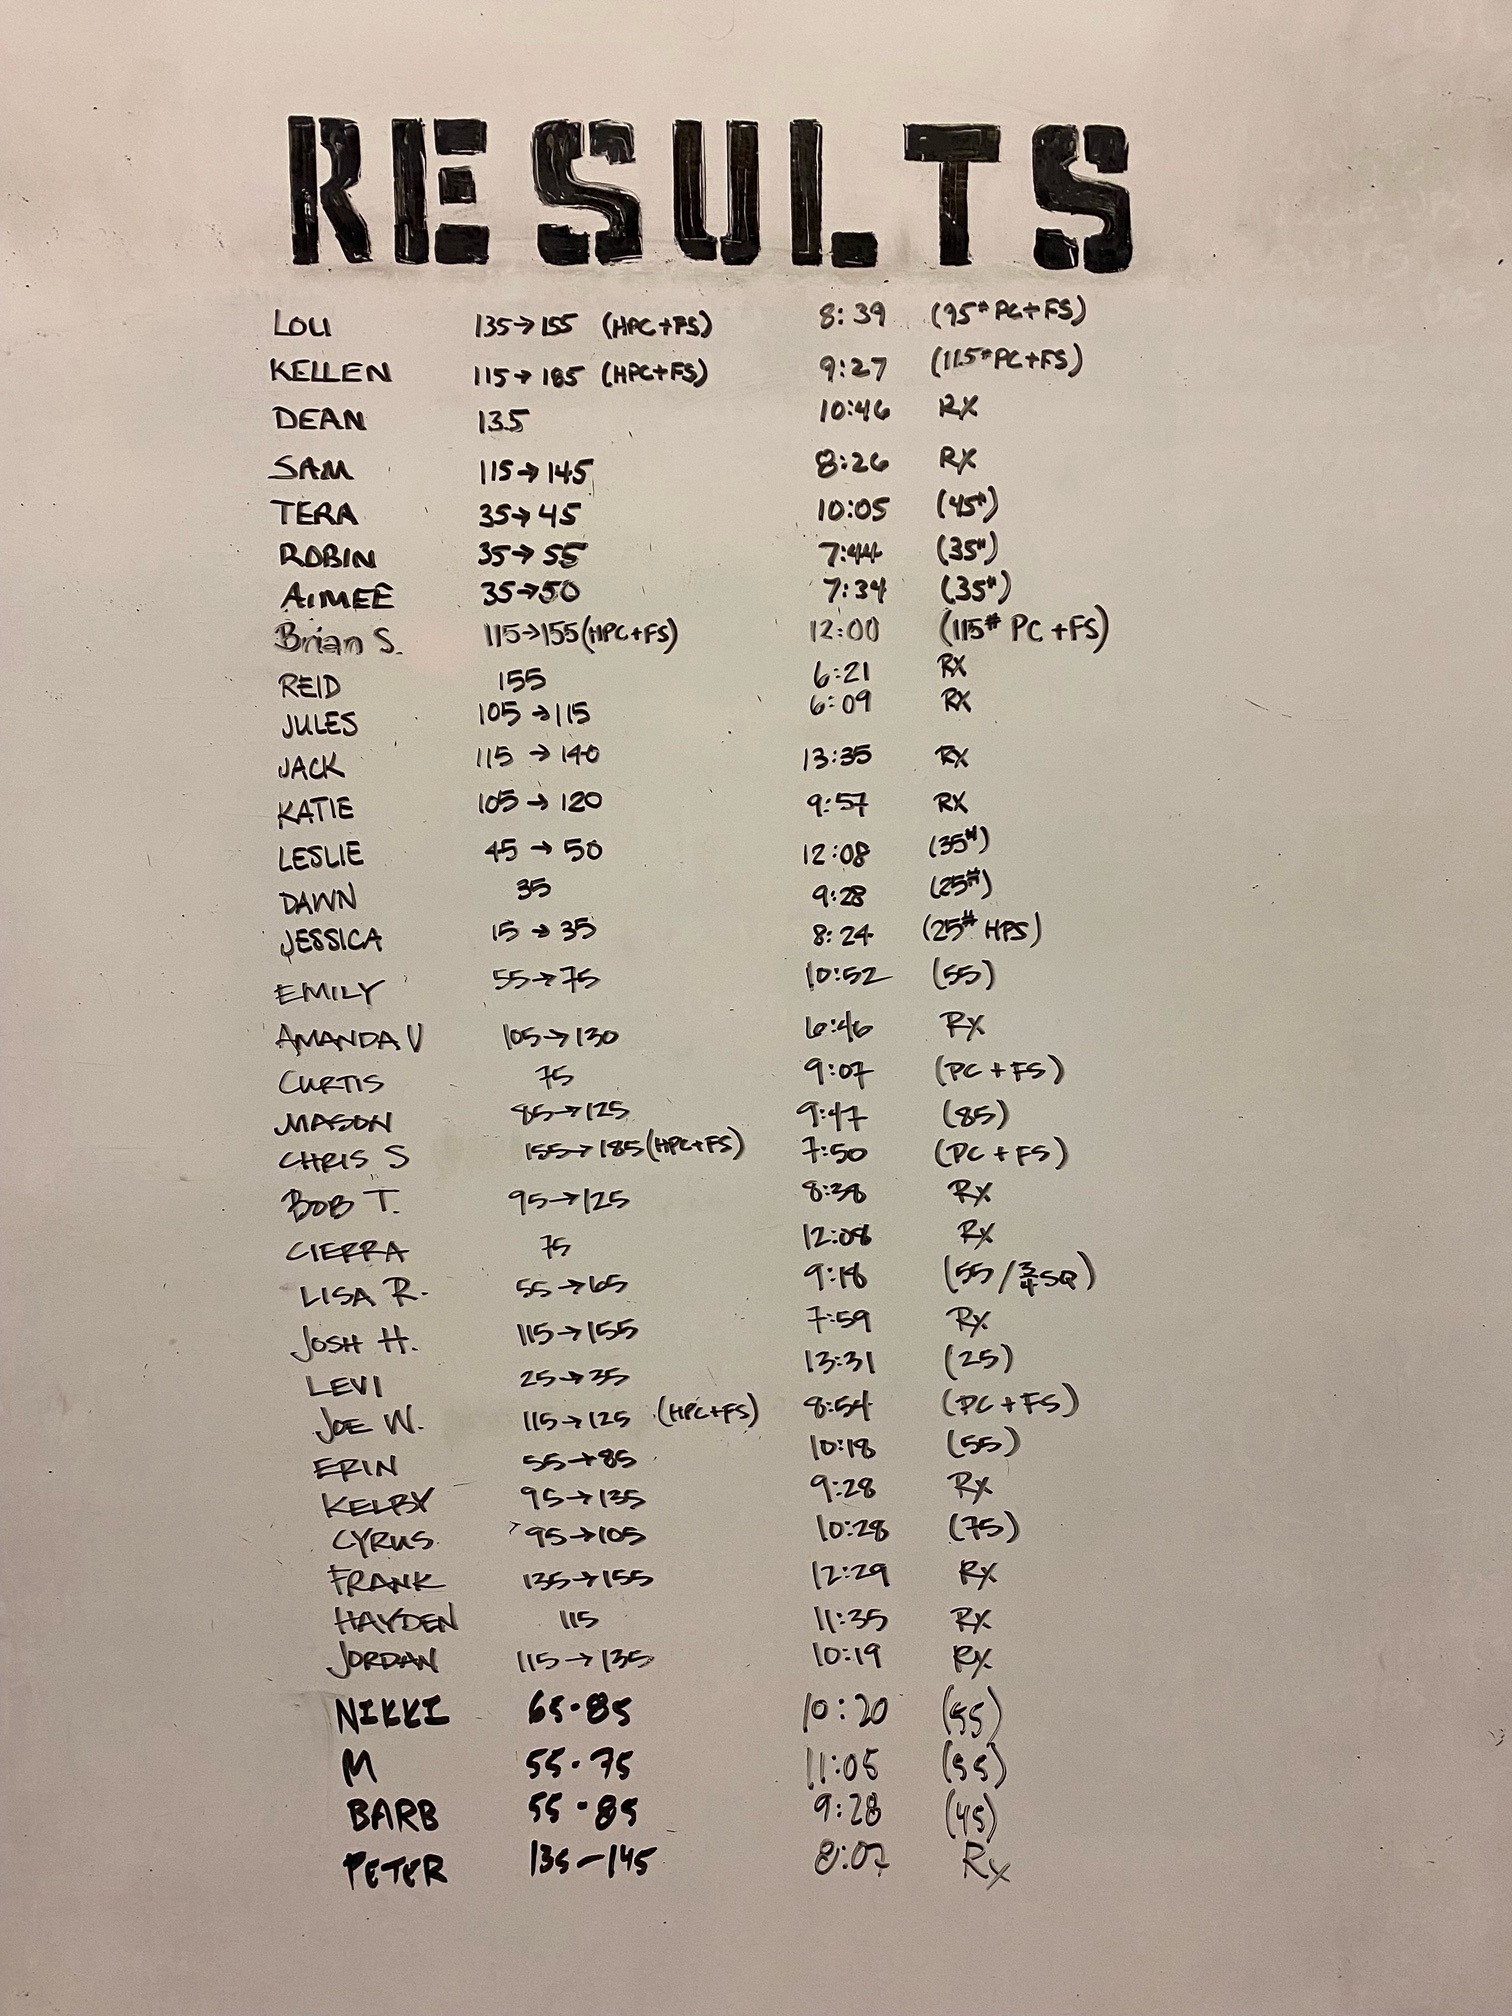 RESULTS
LOU 135→155 (HPC+FS) 8:39 (95# PC+FS)
KELLEN 115→185 (HPC+FS) 9:27 (115# PC+FS)
DEAN 135 10:46 RX
SAM 115→145 8:26 RX
TERA 35→45 10:05 (45#)
ROBIN 35→55 7:44 (35#)
AIMEE 35→50 7:34 (35#)
Brian S. 115→155 (HPC+FS) 12:00 (115# PC+FS)
REID 155 6:21 RX
JULES 105→115 6:09 RX
JACK 115→140 13:35 RX
KATIE 105→120 9:57 RX
LESLIE 45→50 12:08 (35#)
DAWN 35 9:28 (25#)
JESSICA 15→35 8:24 (25# HPS)
EMILY 55→75 10:52 (55)
AMANDA V 105→130 6:46 RX
CURTIS 75 9:07 (PC+FS)
MASON 85→125 9:47 (85)
CHRIS S 155→185 (HPC+FS) 7:50 (PC+FS)
BOB T. 95→125 8:38 RX
CIERRA 75 12:08 RX
LISA R. 55→65 9:18 (55/3/4 SQ)
JOSH H. 115→155 7:59 RX
LEVI 25→35 13:31 (25)
JOE W. 115→125 (HPC+FS) 8:54 (PC+FS)
ERIN 55→85 10:18 (55)
KELBY 95→135 9:28 RX
CYRUS 95→105 10:28 (75)
FRANK 135→155 12:29 RX
HAYDEN 115 11:35 RX
JORDAN 115→135 10:19 RX
NIKKI 65-85 10:20 (55)
M 55-75 11:05 (55)
BARB 55-85 9:28 (45)
PETER 135-145 8:07 Rx